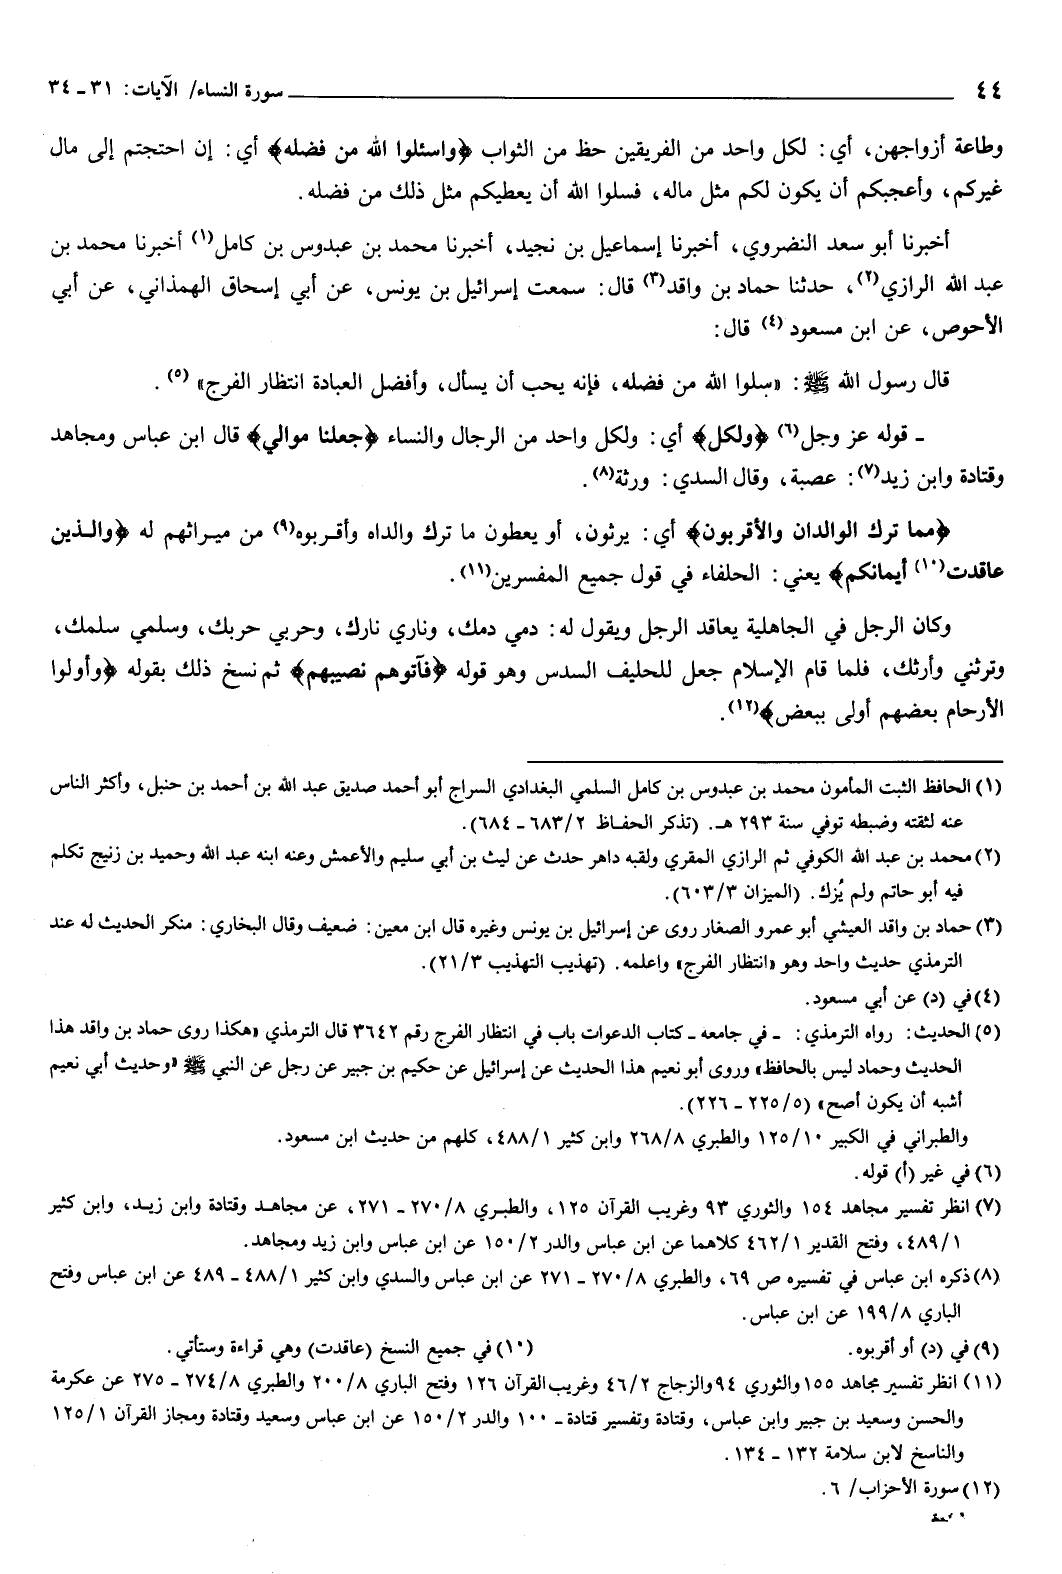 ٤٤ سورة النساء/ الآيات: ٣١ - ٣٤
وطاعة أزواجهن، أي: لكل واحد من الفريقين حظ من الثواب ﴿واسئلوا الله من فضله﴾ أي: إن احتجتم إلى مال
غيركم، وأعجبكم أن يكون لكم مثل ماله، فسلوا الله أن يعطيكم مثل ذلك من فضله.
أخبرنا أبو سعد النضروي، أخبرنا إسماعيل بن نجيد، أخبرنا محمد بن عبدوس بن كامل(١) أخبرنا محمد بن
عبد الله الرازي(٢)، حدثنا حماد بن واقد(٣) قال: سمعت إسرائيل بن يونس، عن أبي إسحاق الهمذاني، عن أبي
الأحوص، عن ابن مسعود (٤) قال:
قال رسول الله ﷺ: «سلوا الله من فضله، فإنه يحب أن يسأل، وأفضل العبادة انتظار الفرج» (٥).
- قوله عز وجل(٦) ﴿ولكل﴾ أي: ولكل واحد من الرجال والنساء ﴿جعلنا موالي﴾ قال ابن عباس ومجاهد
وقتادة وابن زيد(٧): عصبة، وقال السدي: ورثة(٨).
﴿مما ترك الوالدان والأقربون﴾ أي: يرثون، أو يعطون ما ترك والداه وأقربوه(٩) من ميراثهم له ﴿والذين
عاقدت(١٠) أيمانكم﴾ يعني: الحلفاء في قول جميع المفسرين(١١).
وكان الرجل في الجاهلية يعاقد الرجل ويقول له: دمي دمك، وناري نارك، وحربي حربك، وسلمي سلمك،
وترثني وأرثك، فلما قام الإسلام جعل للحليف السدس وهو قوله ﴿فآتوهم نصيبهم﴾ ثم نسخ ذلك بقوله ﴿وأولوا
الأرحام بعضهم أولى ببعض﴾(١٢).
(١) الحافظ الثبت المأمون محمد بن عبدوس بن كامل السلمي البغدادي السراج أبو أحمد صديق عبد الله بن أحمد بن حنبل، وأكثر الناس
عنه لثقته وضبطه توفي سنة ٢٩٣ هـ. (تذكر الحفاظ ٦٨٣/٢ - ٦٨٤).
(٢) محمد بن عبد الله الكوفي ثم الرازي المقري ولقبه داهر حدث عن ليث بن أبي سليم والأعمش وعنه ابنه عبد الله وحميد بن زنيج تكلم
فيه أبو حاتم ولم يُزك. (الميزان ٦٠٣/٣).
(٣) حماد بن واقد العيشي أبو عمرو الصغار روى عن إسرائيل بن يونس وغيره قال ابن معين: ضعيف وقال البخاري: منكر الحديث له عند
الترمذي حديث واحد وهو «انتظار الفرج» واعلمه. (تهذيب التهذيب ٢١/٣).
(٤) في (د) عن أبي مسعود.
(٥) الحديث: رواه الترمذي: - في جامعه - كتاب الدعوات باب في انتظار الفرج رقم ٣٦٤٢ قال الترمذي «هكذا روى حماد بن واقد هذا
الحديث وحماد ليس بالحافظ» وروى أبو نعيم هذا الحديث عن إسرائيل عن حكيم بن جبير عن رجل عن النبي ﷺ «وحديث أبي نعيم
أشبه أن يكون أصح» (٢٢٥/٥ - ٢٢٦).
والطبراني في الكبير ١٢٥/١٠ والطبري ٢٦٨/٨ وابن كثير ٤٨٨/١، كلهم من حديث ابن مسعود.
(٦) في غير (أ) قوله.
(٧) انظر تفسير مجاهد ١٥٤ والثوري ٩٣ وغريب القرآن ١٢٥، والطبري ٢٧٠/٨ - ٢٧١، عن مجاهد وقتادة وابن زيد، وابن كثير
٤٨٩/١، وفتح القدير ٤٦٢/١ كلاهما عن ابن عباس والدر ١٥٠/٢ عن ابن عباس وابن زيد ومجاهد.
(٨) ذكره ابن عباس في تفسيره ص ٦٩، والطبري ٢٧٠/٨ - ٢٧١ عن ابن عباس والسدي وابن كثير ٤٨٨/١ - ٤٨٩ عن ابن عباس وفتح
الباري ١٩٩/٨ عن ابن عباس.
(٩) في (د) أو أقربوه. (١٠) في جميع النسخ (عاقدت) وهي قراءة وستأتي.
(١١) انظر تفسير مجاهد ١٥٥ والثوري ٩٤ والزجاج ٤٦/٢ وغريب القرآن ١٢٦ وفتح الباري ٢٠٠/٨ والطبري ٢٧٤/٨ - ٢٧٥ عن عكرمة
والحسن وسعيد بن جبير وابن عباس، وقتادة وتفسير قتادة - ١٠٠ والدر ١٥٠/٢ عن ابن عباس وسعيد وقتادة ومجاز القرآن ١٢٥/١
والناسخ لابن سلامة ١٣٢ - ١٣٤.
(١٢) سورة الأحزاب/ ٦.